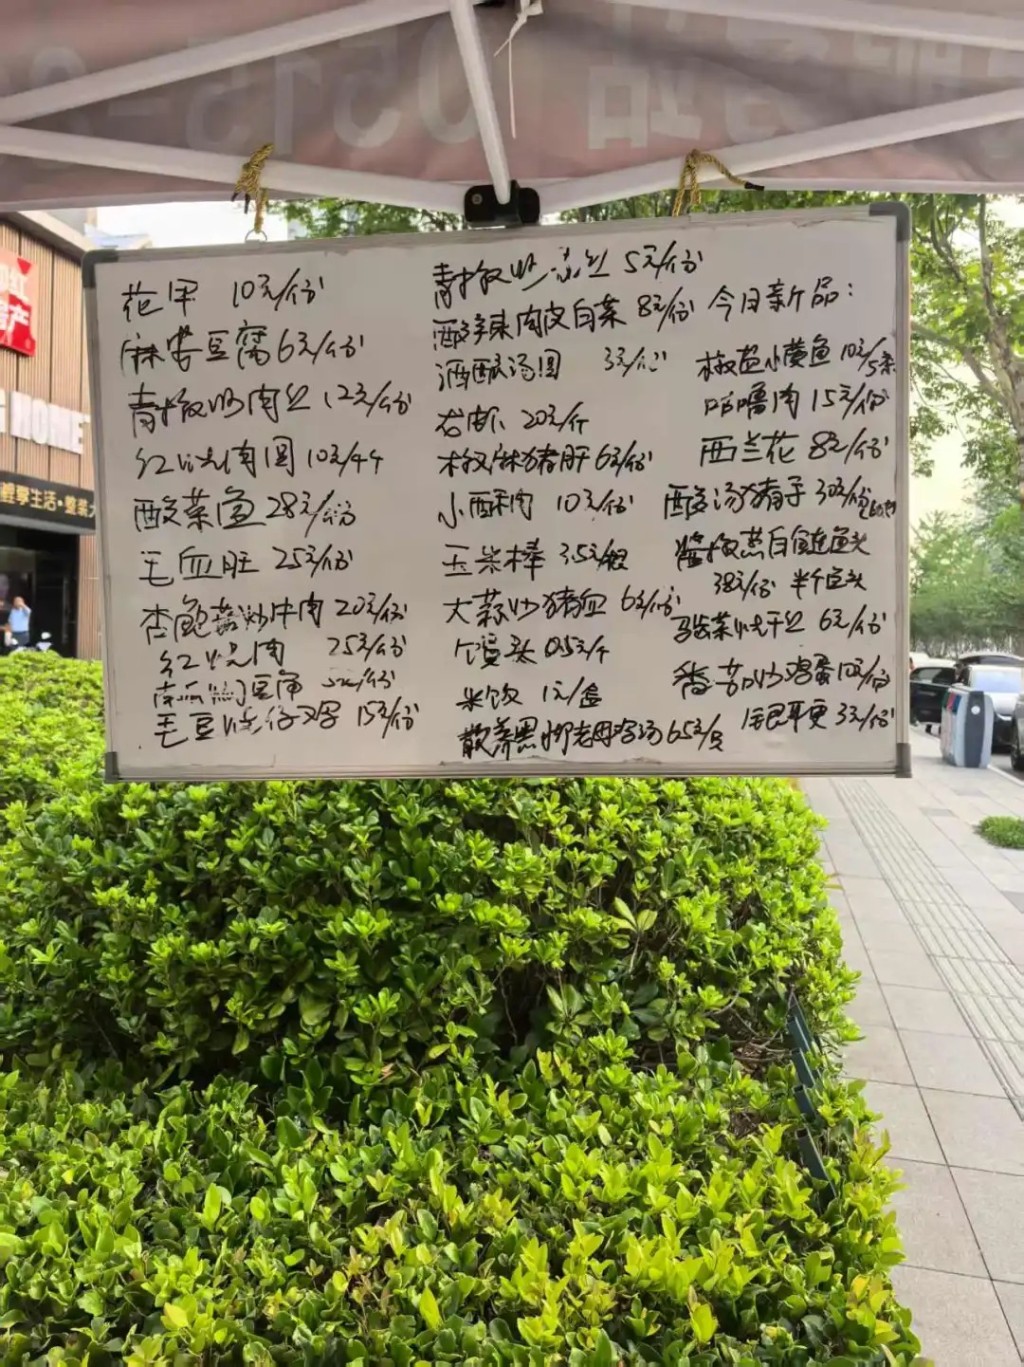 花甲 10元/份
麻婆豆腐 6元/份
青椒炒肉丝 12元/份
红烧肉圆 10元/4个
酸菜鱼 28元/份
毛血旺 25元/份
杏鲍菇炒牛肉 20元/份
红烧肉 25元/份
毛豆烧仔鸡 15元/份
5元/份
酸辣肉皮白菜 8元/份
酒酿汤圆 3元/份
20元/斤
椒麻猪肝 6元/份
小酥肉 10元/份
玉米棒 3.5元/根
大蒜炒猪血 6元/份
馒头 0.5元/个
米饭 1元/盒
散养黑脚老母鸡汤 65元/只
今日新品：
椒盐小黄鱼 10元/5条
咕噜肉 15元/份
西兰花 8元/份
酸汤猪 30元/份
酱椒蒸白鲢鱼头
38元/份 半个鱼头
烧干丝 6元/份
香菇炒鸡蛋 10元/份
银耳羹 3元/份
HOME
生活